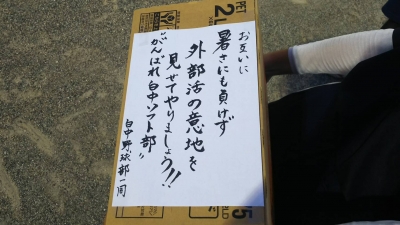 お互いに
暑さにも負けず
外部活の意地を
見せてやりましょう!!
"がんばれ白中ソフト部"
白中野球部一同
PET
2L